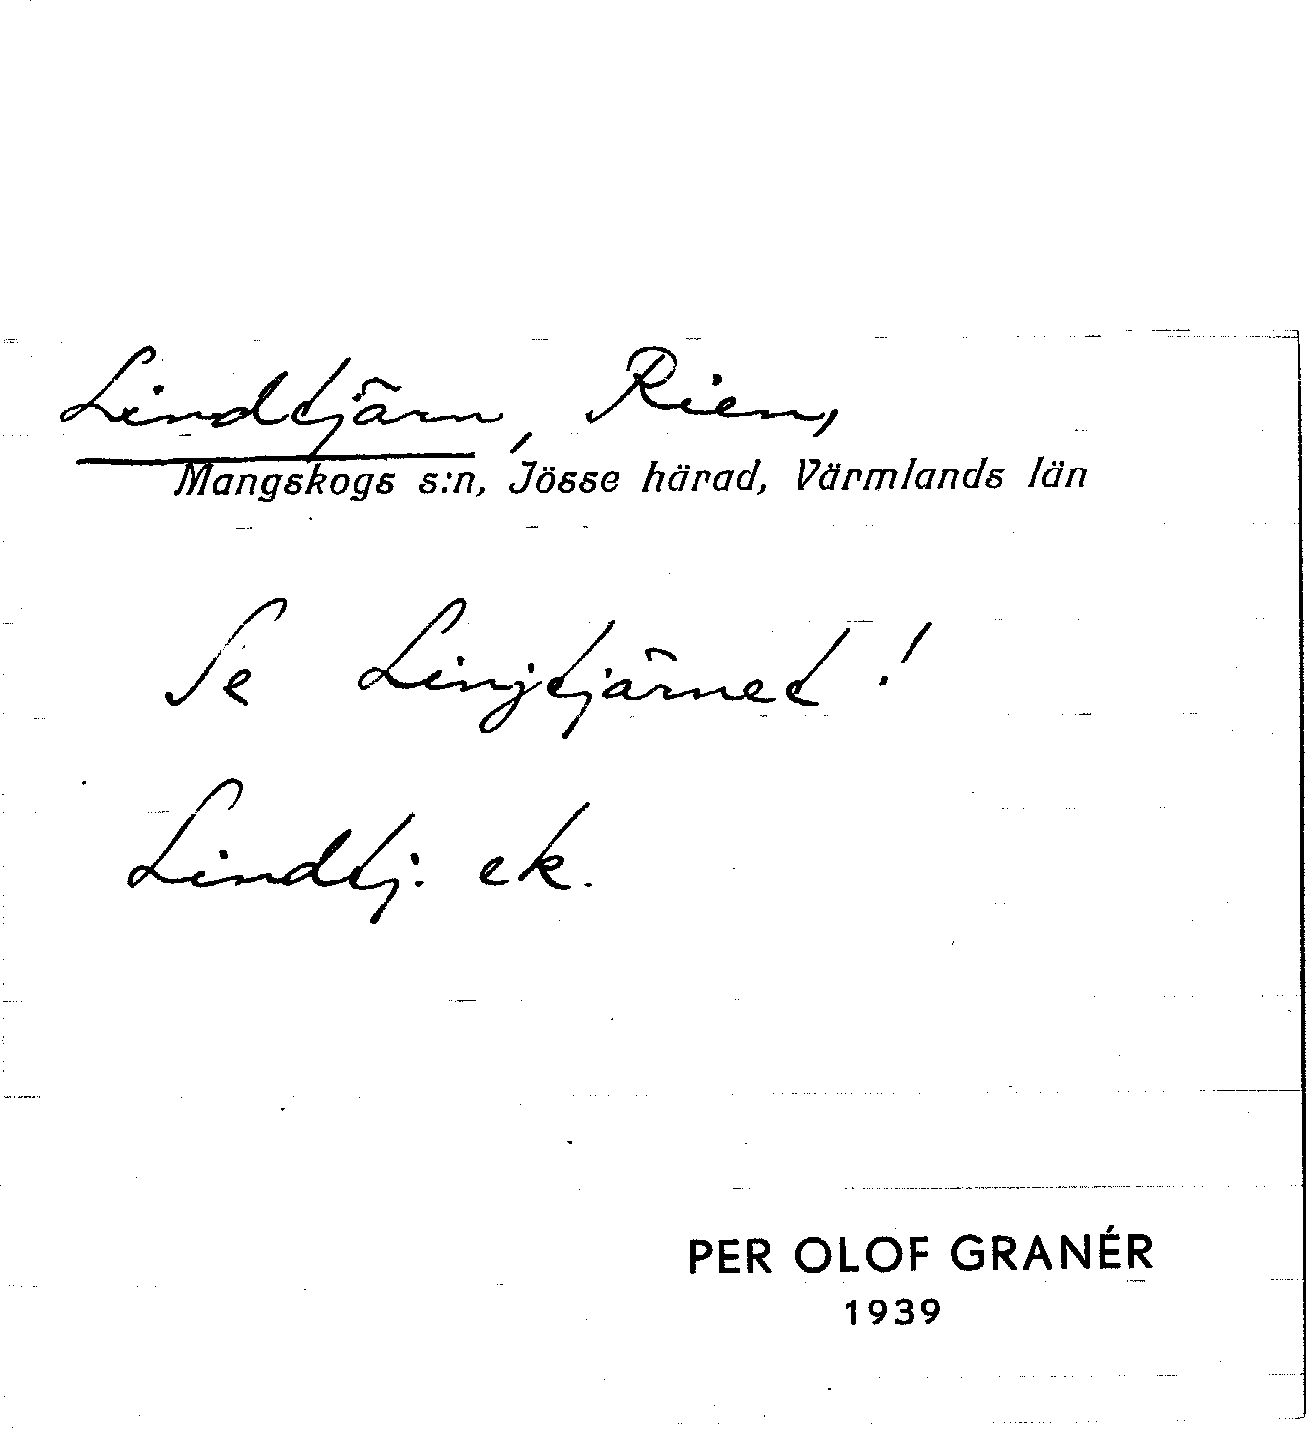 Lindtjärn, Rien,
Mangskogs s:n, Jösse härad, Värmlands län
Se Lingtjärnet!
Lindtj. ek.
PER OLOF GRANÉR
1939